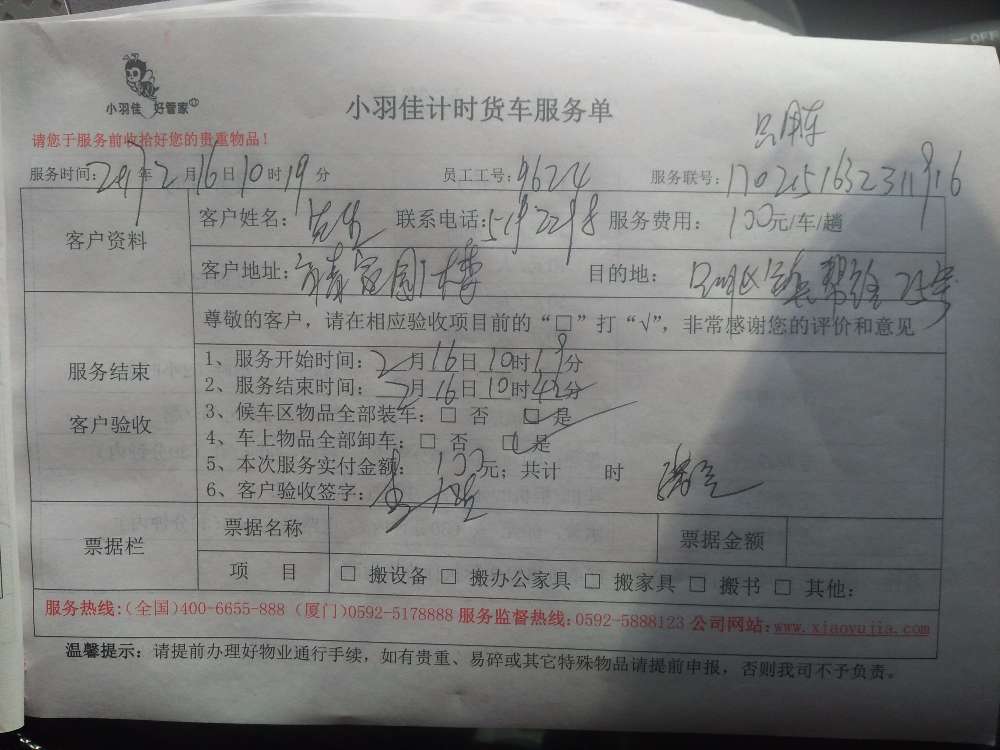 小羽佳 好管家
小羽佳计时货车服务单
请您于服务前收拾好您的贵重物品!
服务时间:2017年2月16日10时19分 员工工号:9624 服务联号:
客户资料
客户姓名: 联系电话:5192298 服务费用: 100元/车/趟
客户地址: 目的地:
尊敬的客户，请在相应验收项目前的“□”打“√”，非常感谢您的评价和意见
服务结束
客户验收
1、服务开始时间:2月16日10时19分
2、服务结束时间:2月16日10时42分
3、候车区物品全部装车:□ 否 □ 是
4、车上物品全部卸车:□ 否 □ 是
5、本次服务实付金额: 100元；共计 时
6、客户验收签字:
票据栏
票据名称 票据金额
项 目 □ 搬设备 □ 搬办公家具 □ 搬家具 □ 搬书 □ 其他:
服务热线:(全国)400-6655-888 (厦门)0592-5178888 服务监督热线:0592-5888123 公司网站:www.xiaoyujia.com
温馨提示: 请提前办理好物业通行手续，如有贵重、易碎或其它特殊物品请提前申报，否则我司不予负责。